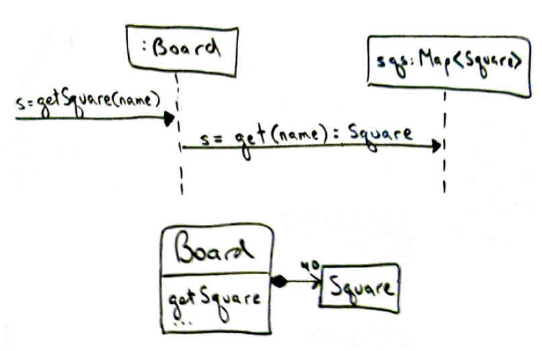 :Board
sqs:Map<Square>
s=getSquare(name)
s= get(name): Square
Board
getSquare
...
40
Square